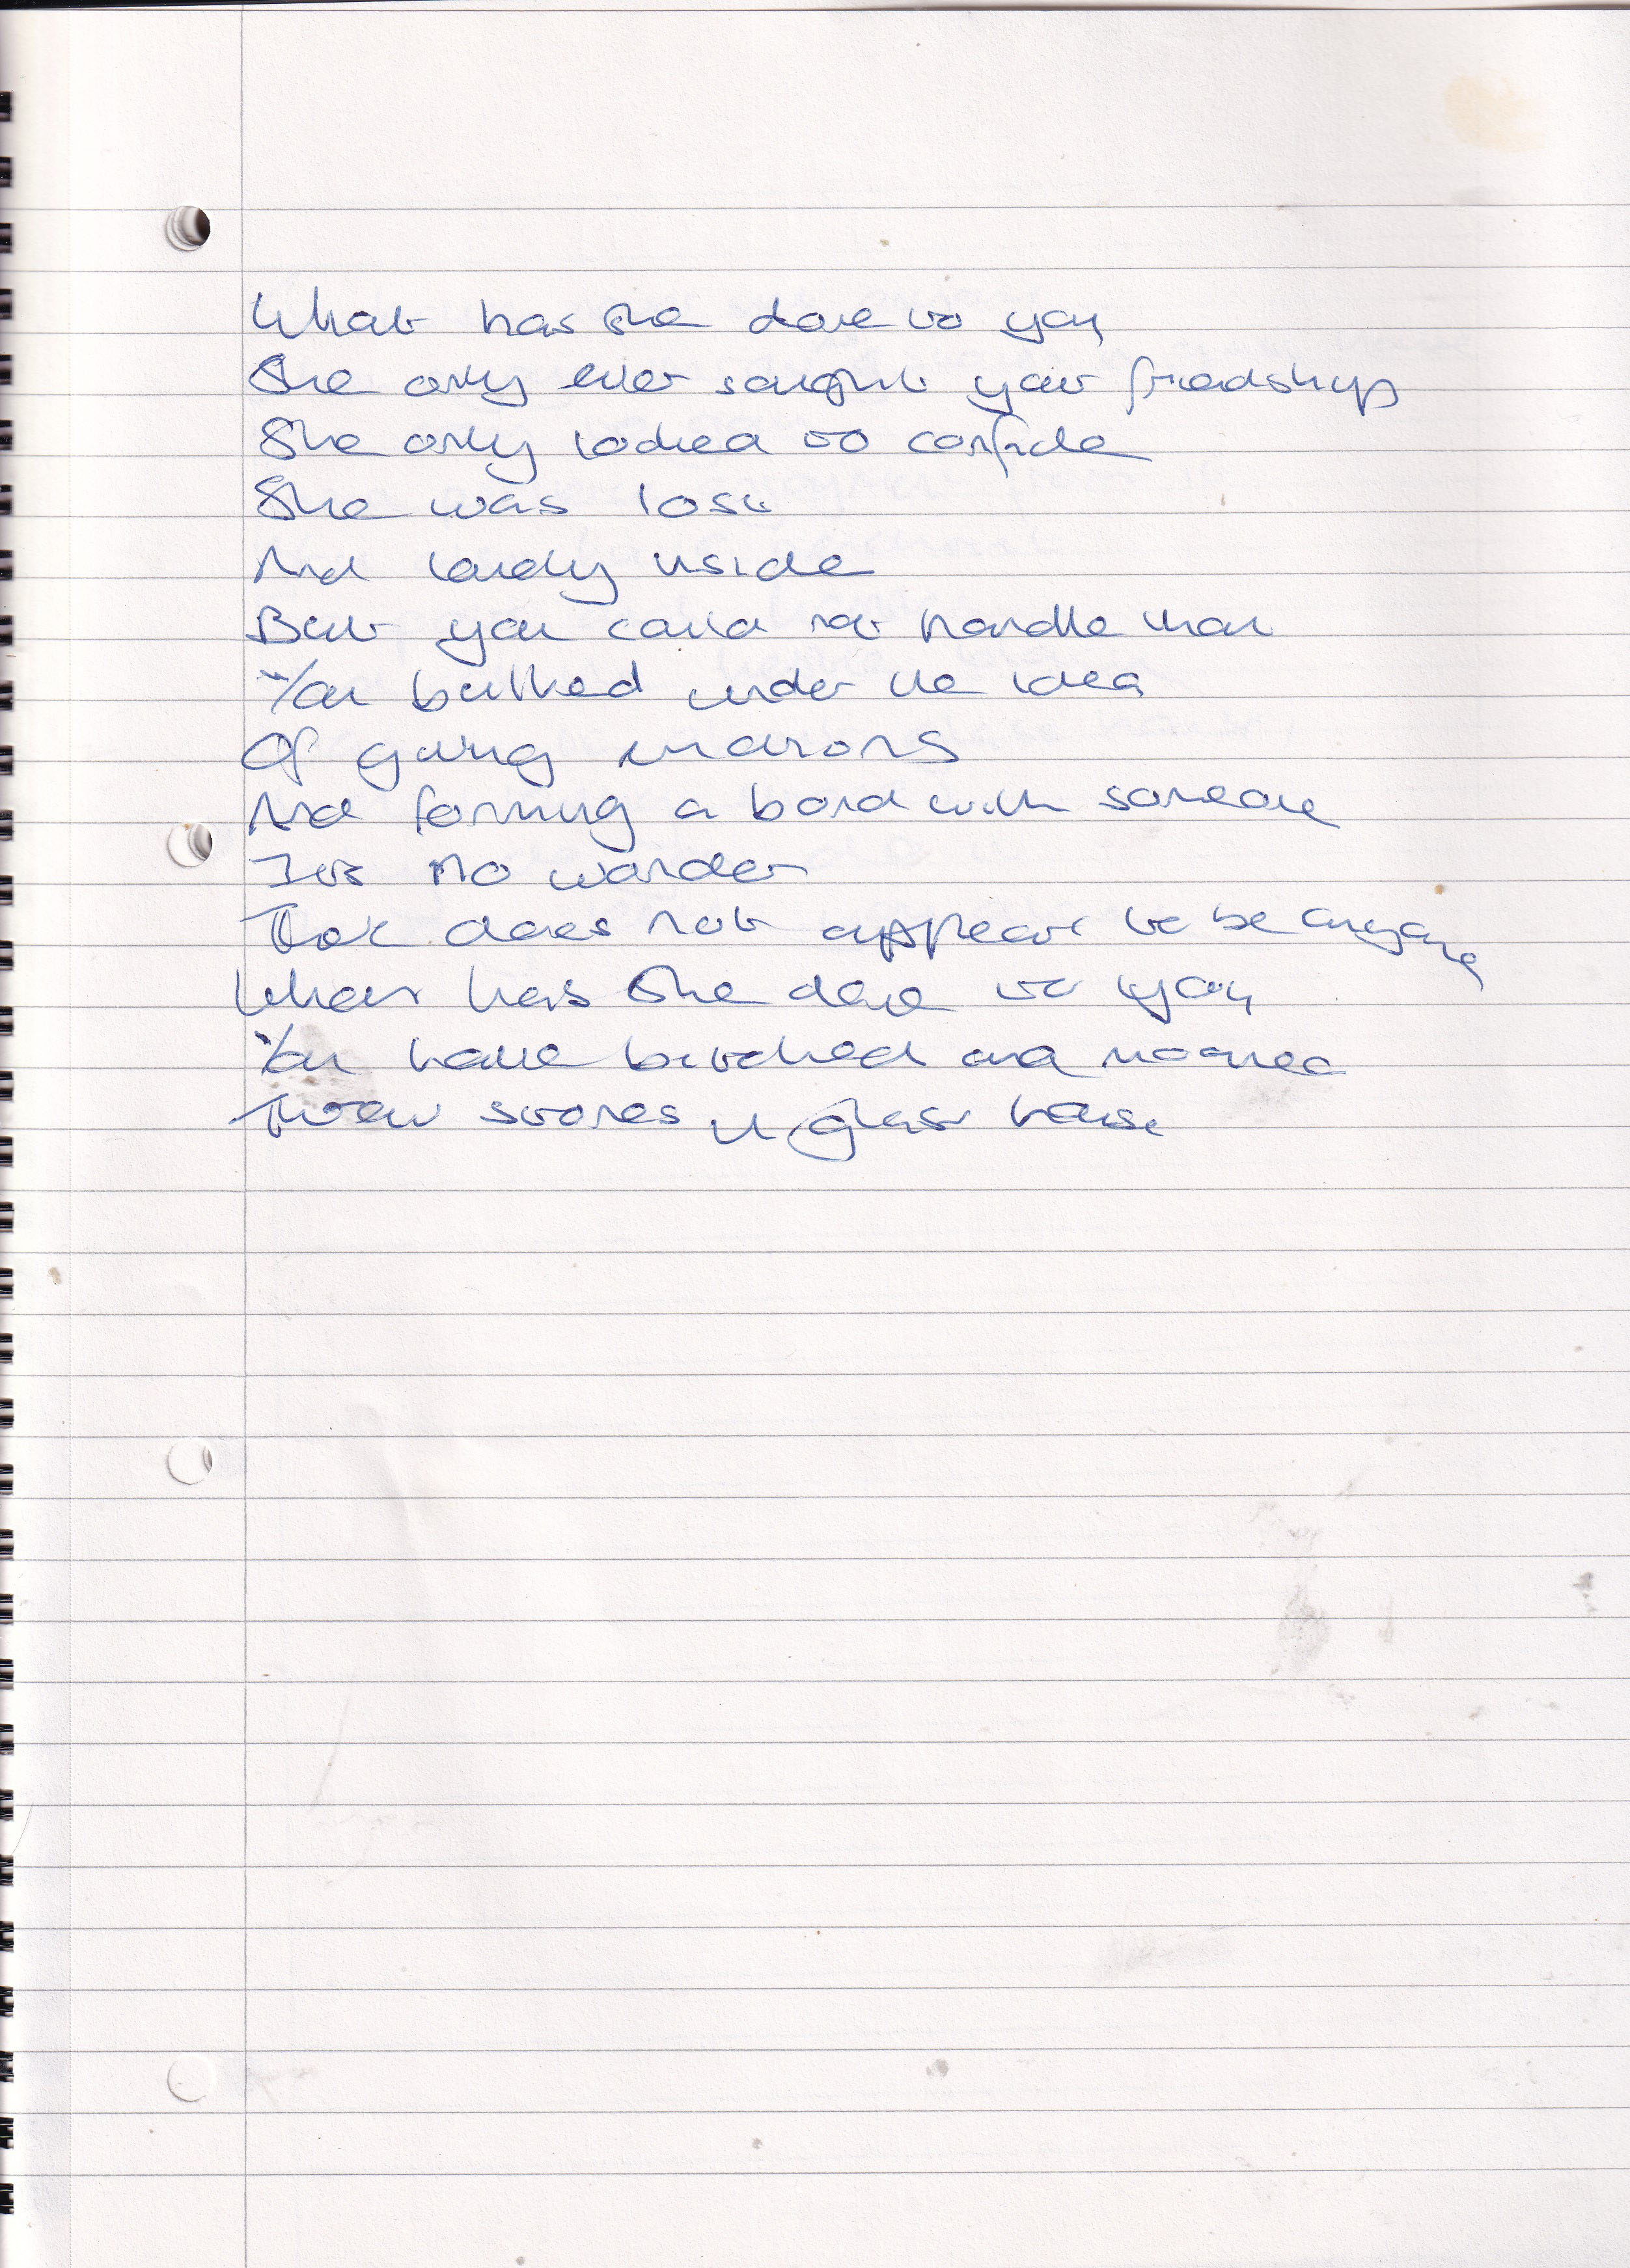 What has she done to you
She only ever sought your friendship
She only looked to confide
She was lost
And lonely inside
But you could not handle that
You bulked under the idea
Of giving
And forming a bond with someone
Its no wonder
That does not appear to be anyone
What has she done to you
You have bitched and moaned
Throw stones in glass house